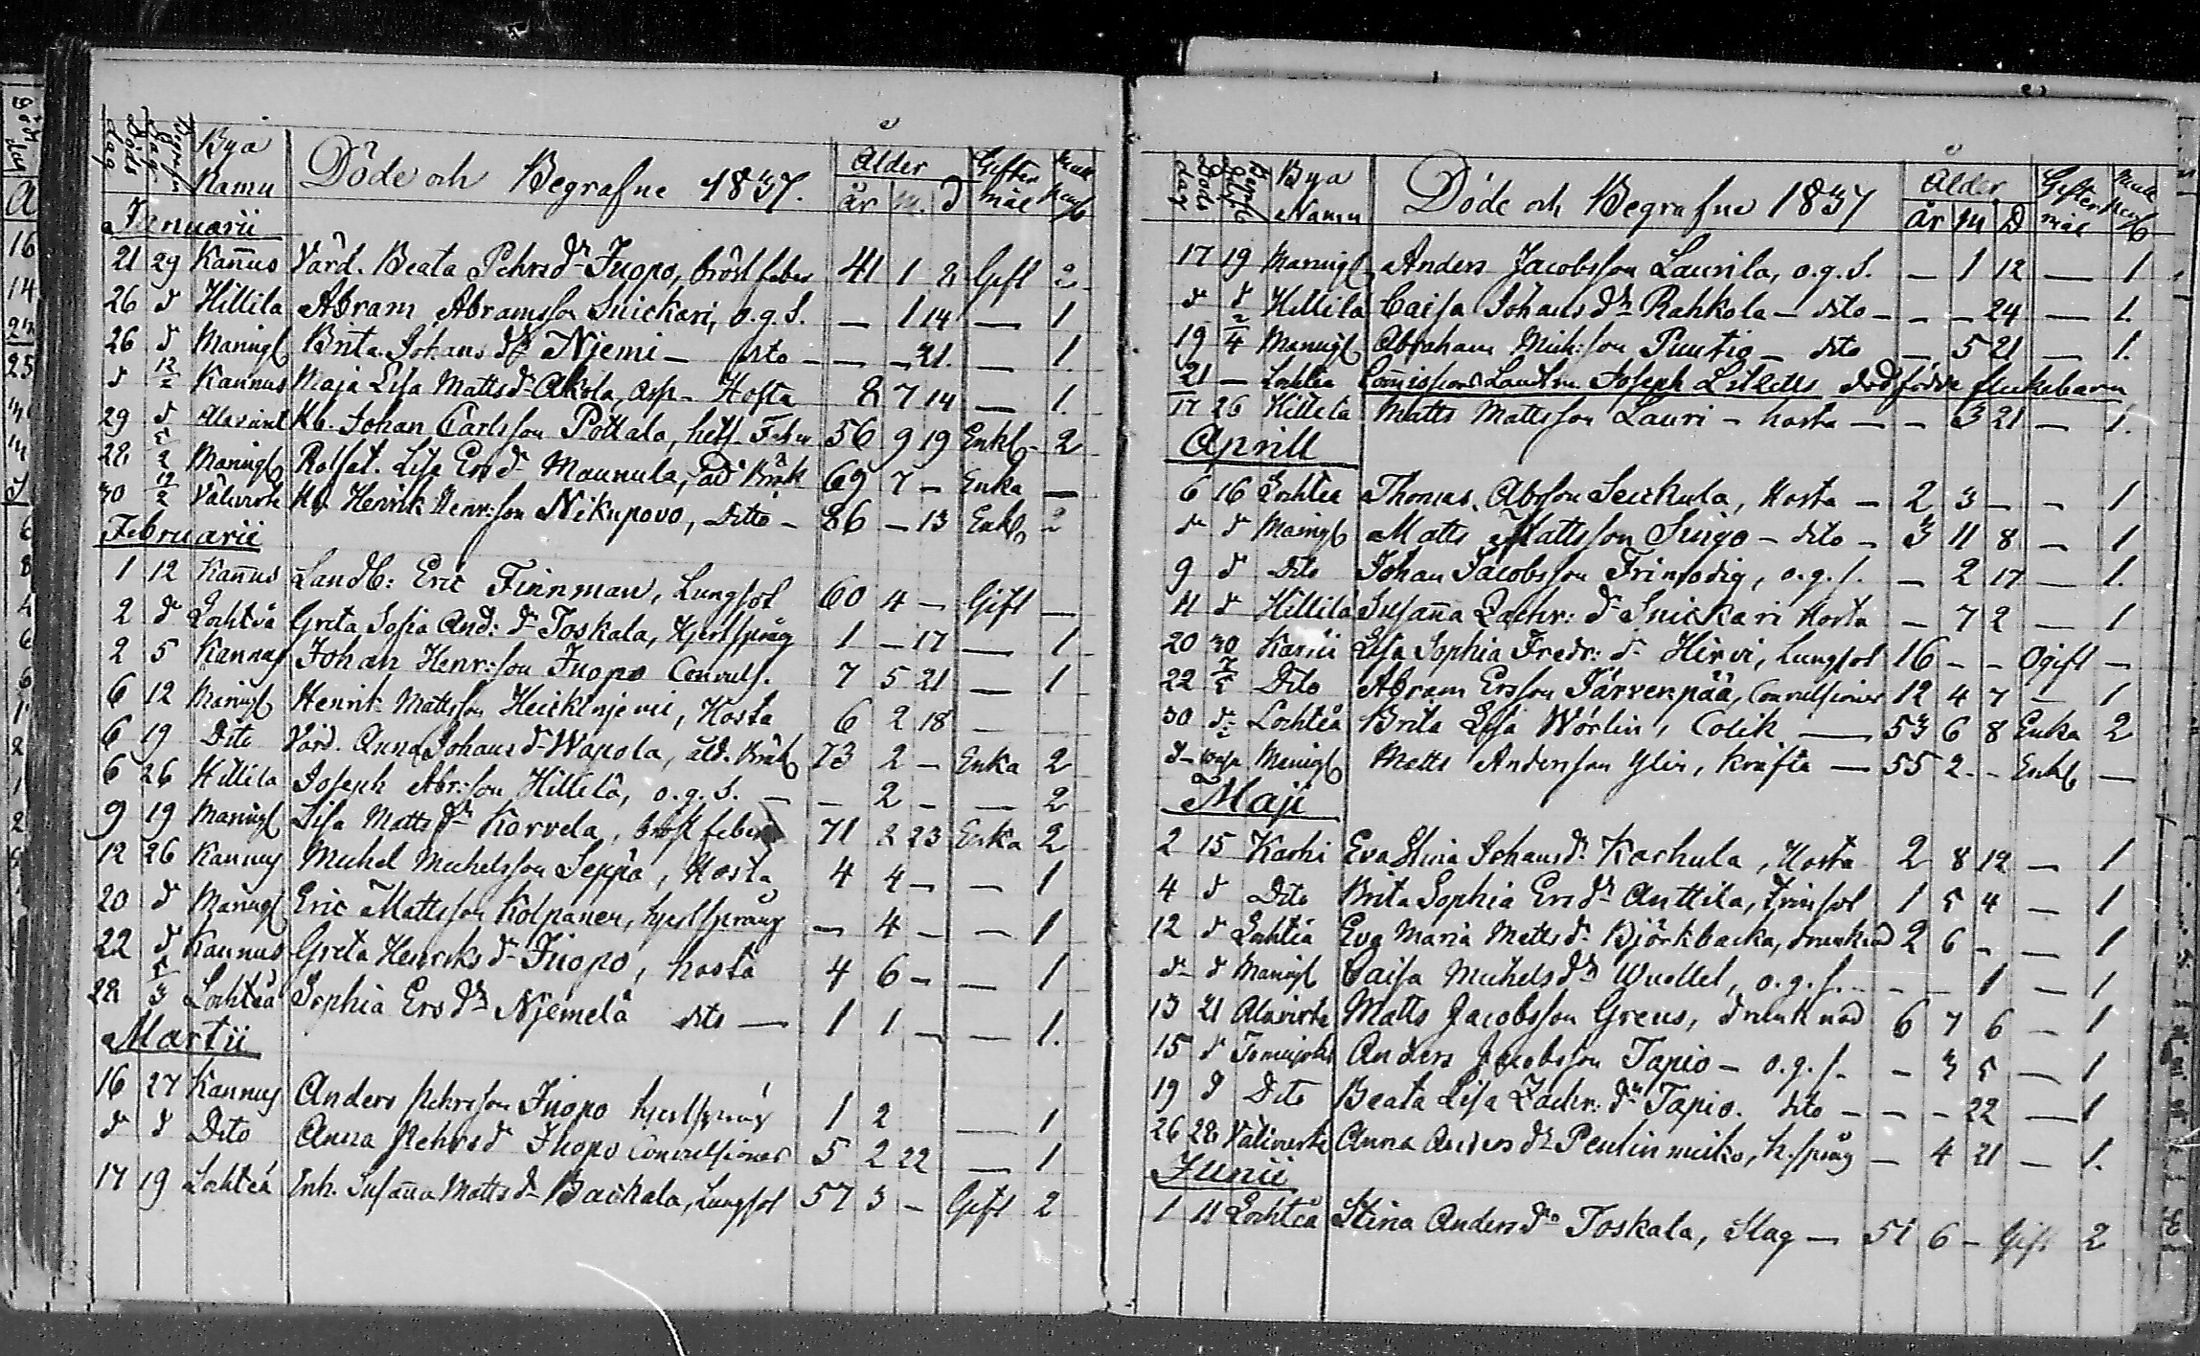 Döds dag Begrafn. dag Bya Namn Döde och Begrafne 1837. Ålder år m. D Gifter mål
Januarii
21 29 Kañus Värd. Beata Pehrsdr Juopo, bröst feber 41 1 2 Gift 2
26 d Hillilä Abram Abramsson Snickari, o.g.S. — 1 14 — 1
26 d Maringl Brita Johansdr Njemi — dito — — — 21. — 1.
d 12/2 Kannus Maja Lisa Mattsdr Akola, asp- Hosta 8 7 14 — 1.
29 d Alaviirt Kb. Johan Carlsson Pottala, hets. Feber 56 9 19 Enkl. 2
28 5/2 Maringl Rotfat. Lisa Ersdr Maunula, åld Bräk 69 7 — Enka —
30 12/2 Välivirt Kb. Henrik Henr:son Nikupovo, Ditto — 86 — 13 Enkl 2
Februarii
1 12 Kañus Landb: Eric Finnman, Lungsot 60 4 — Gift —
2 d Lochteå Greta Sofia And: dr Toskala, Hjertspång 1 — 17 — 1
2 5 Kannus Johan Henr:son Juopo Convuls. 7 5 21 — 1
6 12 Maringl Henrik Mattsson Heickinjemi, Hosta 6 2 18 —
6 19 Dito Värd. Anna Johansdr Wapola, åld. Bräk 73 2 — Enka 2
6 26 Hillilä Joseph Abr:son Hillilä, o.g.S. — — 2 — — 2
9 19 Maringl Lisa Mattsdr Korvela, bröst feber 71 2 23 Enka 2
12 26 Kannus Michel Michelsson Seppä, Hosta 4 4 — — 1
20 d Maringl Eric Mattsson Kolpanen, hjertsprång — 4 — — 1
22 d Kannus Greta Henriksdr Juopo, hosta 4 6 — — 1
28 5/3 Lochteå Sophia Ersdr Njemelä dito — 1 1 — — 1.
Martii
16 27 Kannus Anders Pehrsson Juopo hjertsprång 1 2 — 1
d d Dito Anna Pehrsdr Juopo Convulsioner 5 2 22 — 1
17 19 Lochteå Inh. Susanna Mattsdr Backala, Lungsot 57 3 — Gift 2
Döds dag Bya Namn Döde och Begrafne 1837 Ålder År M D Gifter mål
17 19 Maringl Anders Jacobsson Laurila, o.g.S. — 1 12 — 1
d d Hillilä Caisa Johansdr Rahkola — dito — — — 24 — 1.
19 2/4 Maringl Abraham Mich:son Puutio — dito — 5 21 — 1.
21 — Lochteå Comissions Landtm. Joseph dödfödde flickebarn
17 26 Hillilä Matts Mattsson Lauri — hosta — — 3 21 — 1.
Aprill
6 16 Lochteå Thomas Abrsson Seickula, Hosta — 2 3 — — 1
d d Maringl Matts Mattsson Jungo — dito — 3 11 8 — 1
9 d Dito Johan Jacobsson Frimodig, o.g.s. — 2 17 — 1.
11 d Hillilä Susaña Zachr: dr Snickari Hosta — 7 2 — 1
20 30 Karhi Lisa Sophia Fredr: dr Hirvi, Lungsot 16 — — Ogift —
22 7/5 Dito Abram Ersson Järvenpää, Convulsioner 12 4 7 — 1
30 d Lochteå Brita Lisa Wörlin, Colik — 53 6 8 Enka 2
d Maringl Matts Andersson Ylin, Kräfta — 55 2 — Enkl —
Maji
2 15 Karhi Eva Stina Johansdr Karhula, Hosta 2 8 12 — 1
4 d Dito Brita Sophia Ersdr Anttila, Trinsot 1 5 4 — 1
12 d Lochteå Eva Maria Mattsdr Björkbacka, drunknad 2 6 — — 1
d d Maringl Caisa Michelsdr Wuollet, o.g.s. — — 1 — 1
13 21 Alavirte Matts Jacobsson Greus, drunknad 6 7 6 — 1
15 d Tomujoki Anders Jacobsson Tapio — o.g.s. — 3 5 — 1
19 d Dito Beata Lisa Zachr: dr Tapio. dito — — — 22 — 1
26 28 Välivirte Anna Andersdr Penlinmiko, h.spång — 4 21 — 1.
Junii
1 11 Lochteå Stina Andersdr Toskala, Slag — 51 6 — Gift 2